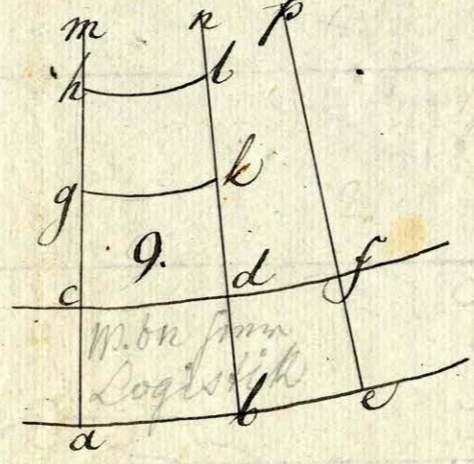 m n p
h l
g k
9.
c d f
Logistik
a b e